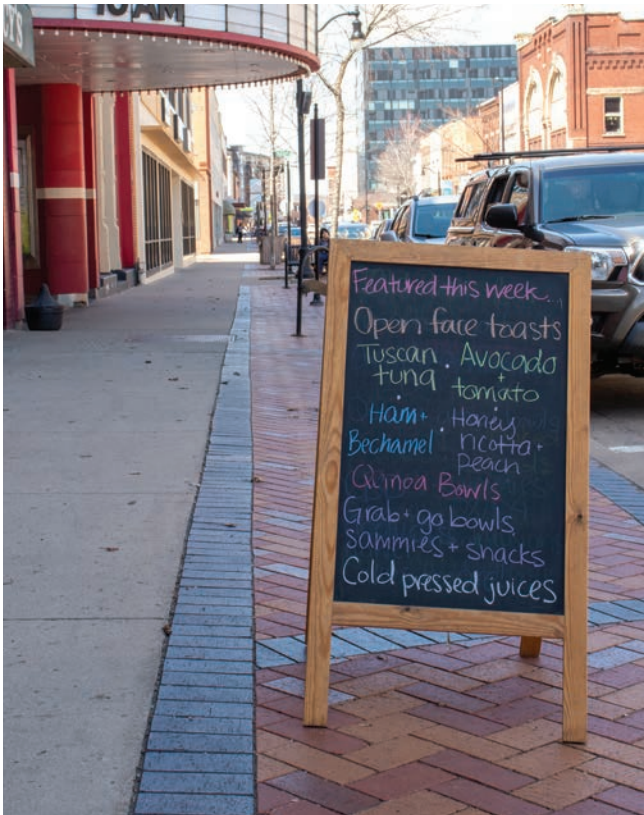 10 AM
Featured this week...
Open face toasts
Tuscan · Avocado
tuna + tomato
Ham + Bechamel · Honey ricotta + peach
Quinoa Bowls
Grab + go bowls
sammies + snacks
Cold pressed juices